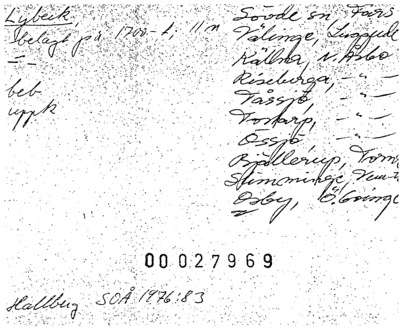 Lybeck,
belagt på 1700-t; 11 n
— " —
beb
uppk
Sövde sn, Färs
Välinge, Luggude
Källna, N. Åsbo
Riseberga, — " —
Tåssjö, — " —
Tostarp, — " —
Össjö, — " —
Bjällerup, Torna
Stimminge, Vem
Osby, Ö. Göinge
00027969
Hallberg SOÅ 1976:83